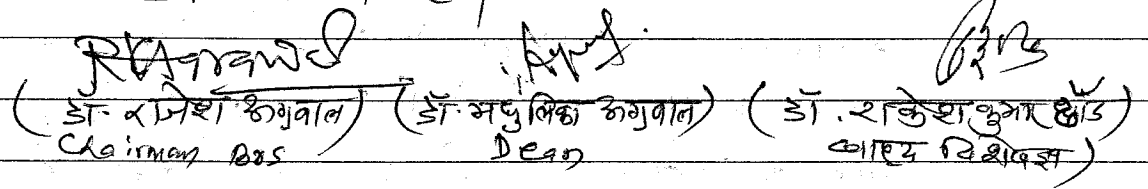 RKAgrawal
(डॉ. राजेश अग्रवाल) (डॉ. मधुलिका अग्रवाल) (डॉ. राकेश कुमार
Chairman BOS Dean बाह्य विशेषज्ञ)